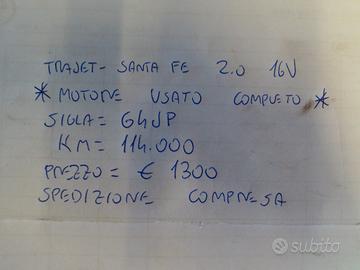 TRAJET- SANTA FE 2.0 16V
* MOTORE USATO COMPLETO *
SIGLA = G4JP
KM = 114.000
PREZZO = € 1300
SPEDIZIONE COMPRESA
subito